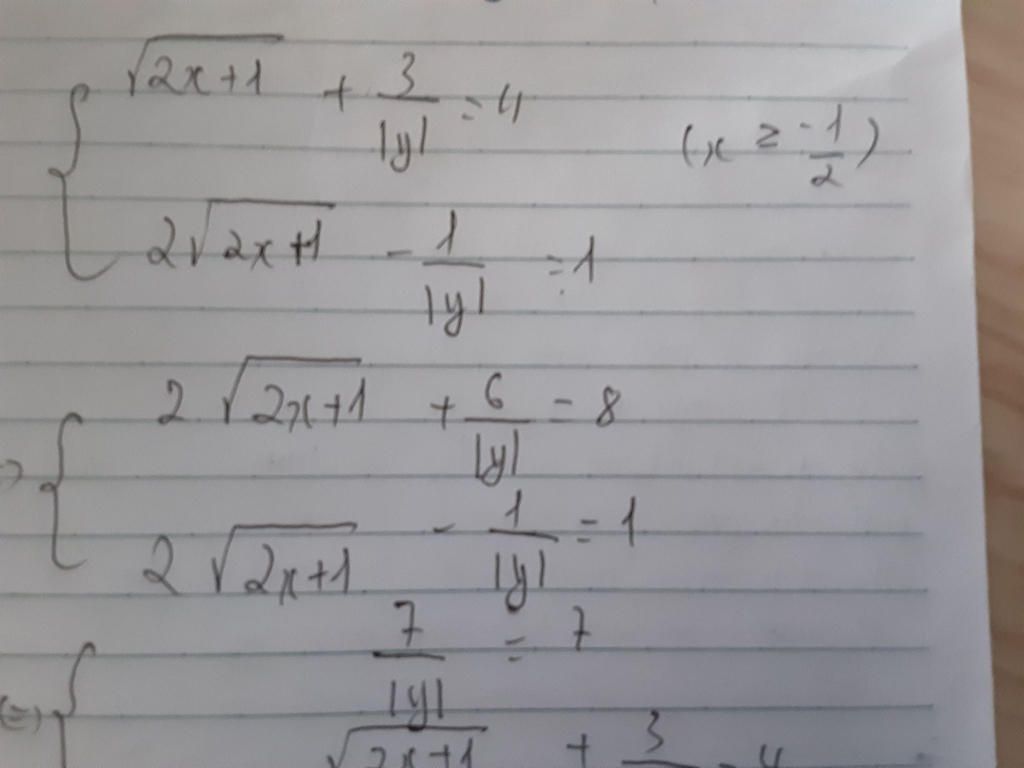 √(2x+1) + 3/|y| = 4 (x ≥ -1/2)
2√(2x+1) - 1/|y| = 1
2√(2x+1) + 6/|y| = 8
2√(2x+1) - 1/|y| = 1
7/|y| = 7
√(2x+1) + 3 = 4